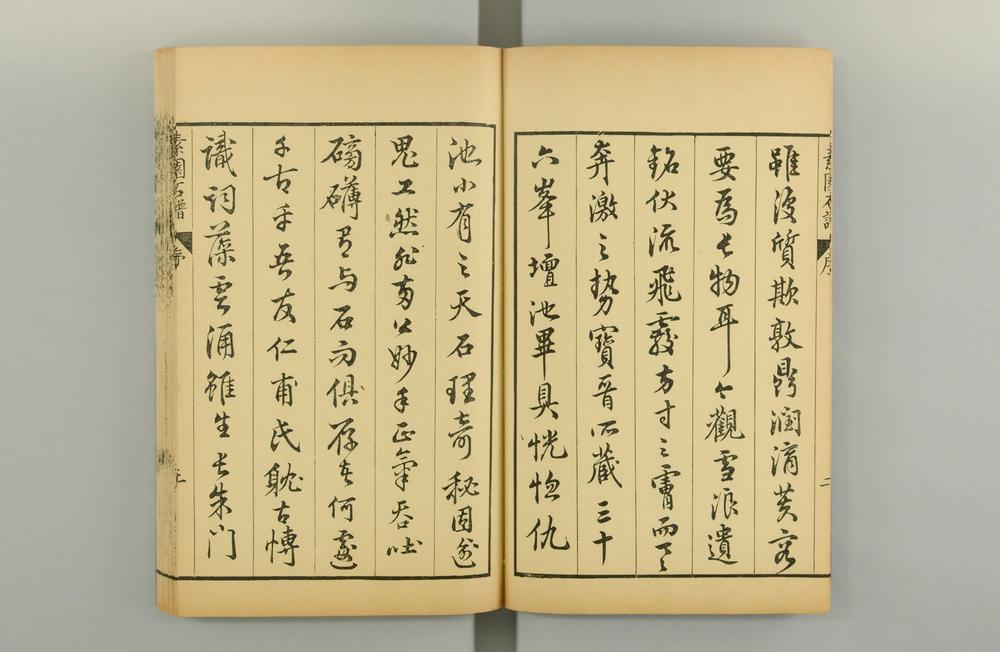 素園石譜 序 二
雖波質欺敦鼎潤滴芙蓉
要爲長物耳今觀雪浪遺
銘伏流飛霞方寸之霤而具
奔激之勢寶晉所藏三十
六峯壇池畢具恍惚仇
池小有之天石理奇秘固蚤
鬼工然非夢公妙手正氣吞吐
磅礴有与石而俱存者何處
千古乎吾友仁甫氏躭古博
識詞藻雲涌雖生長朱门
素園石譜 序 三